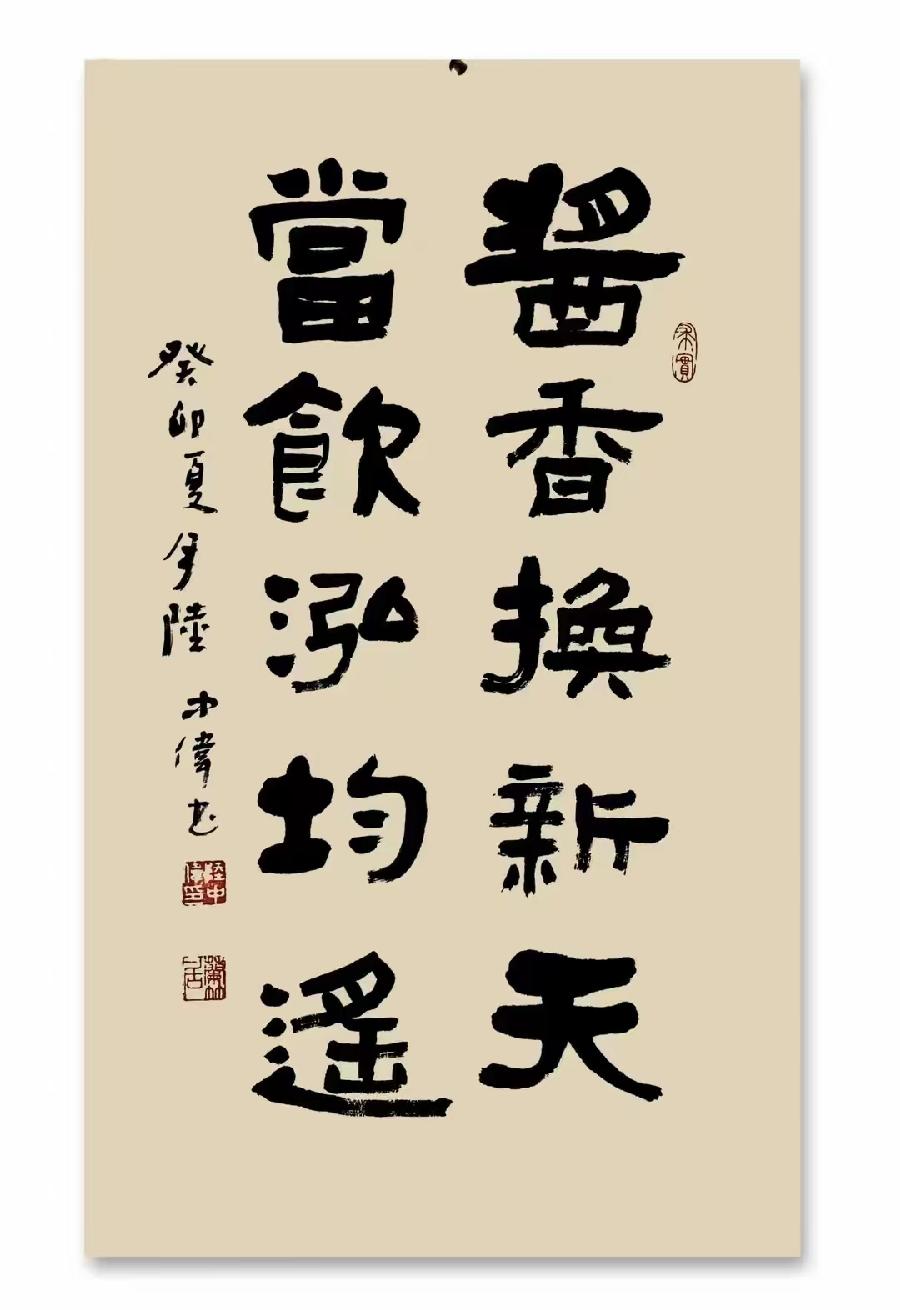 醬香換新天
當飲泓均遙
癸卯夏月陸
中偉书